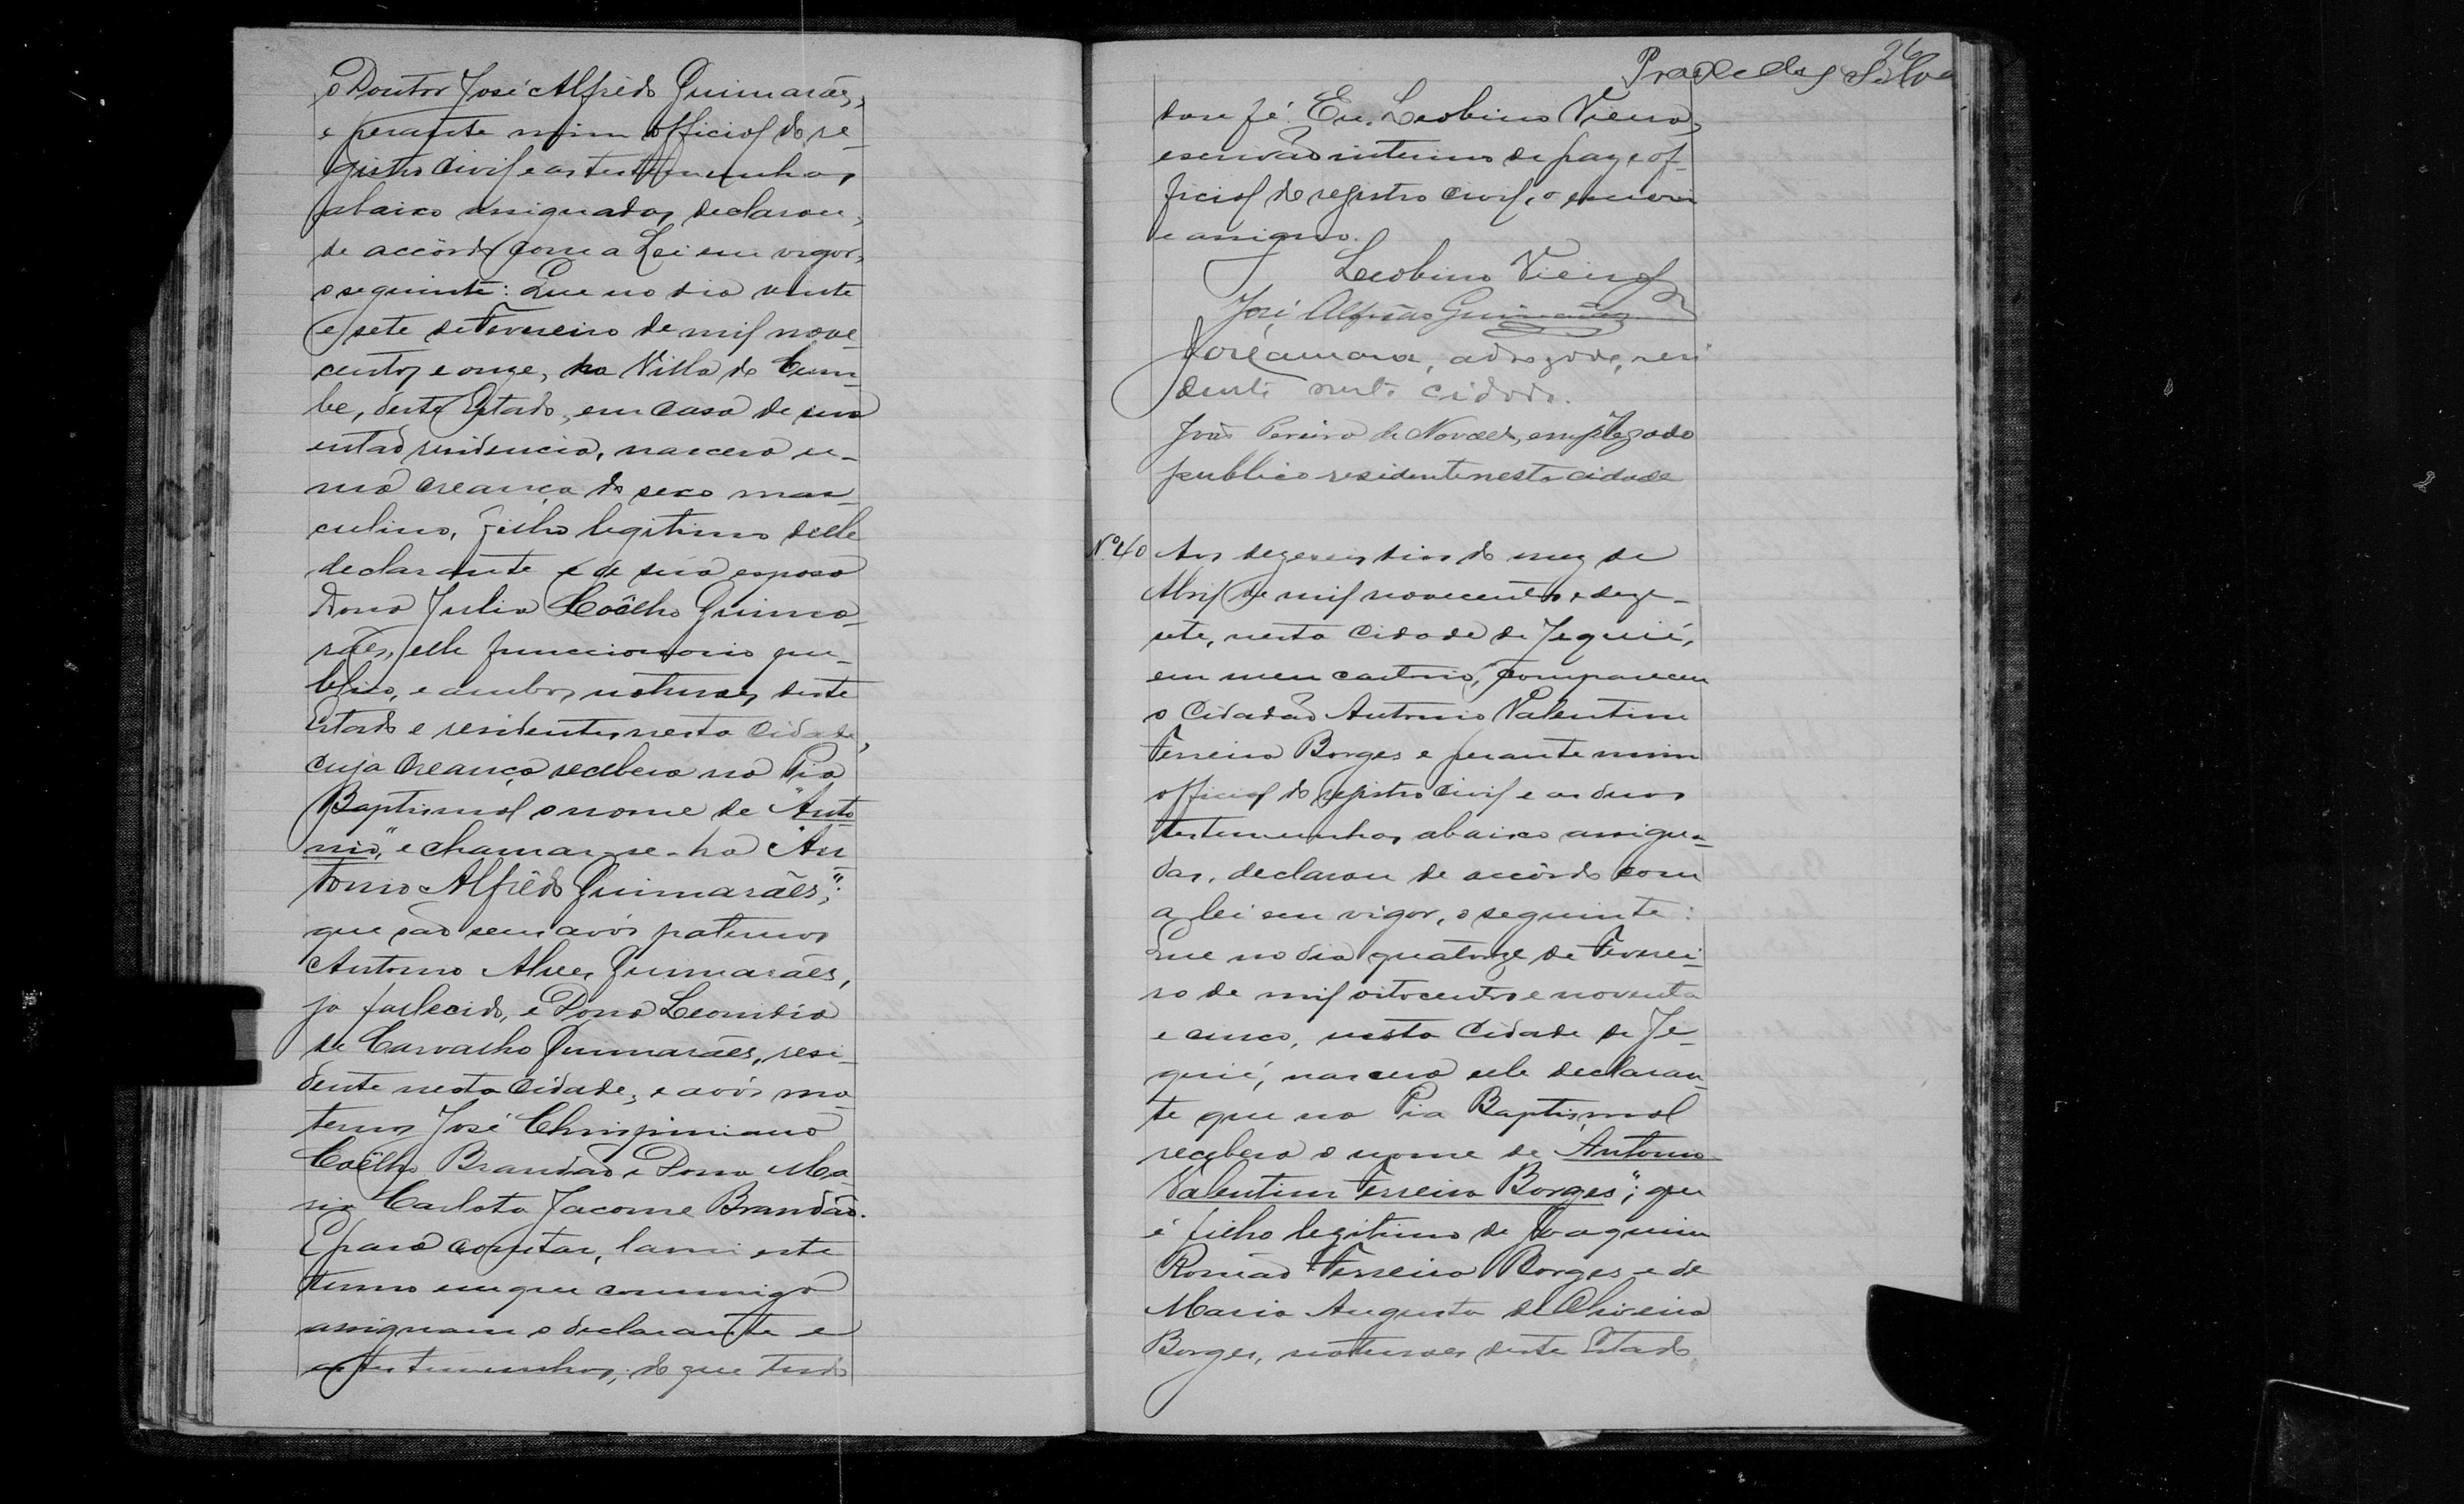 o Doutor José Alfrêdo Guimarães,
e perante mim official do re-
gistro civil e as testemunhas
abaixo assignadas, declarou,
de accôrdo com a Lei em vigor,
o seguinte: Que no dia vinte
e sete de Fevereiro de mil nove-
centos e onze, na Villa do Cum-
be, deste Estado, em casa de sua
então residencia, nascera u-
ma creança do sexo mas-
culino, filho legitimo delle
declarante e de sua esposa
Dona Julia Coêlho Guima-
rães, elle funccionario pu-
blico, e ambos naturaes deste
Estado e residentes nesta Cidade,
cuja creança recebera na Pia
Baptismal o nome de "Anto-
nio", e chamar-se-ha "An
tonio Alfrêdo Guimarães";
que são seus avós paternos
Antonio Alves Guimarães,
já fallecido, e Dona Leonidia
de Carvalho Guimarães, resi-
dente nesta Cidade, e avós ma-
ternos José Chrispiniano
Coêlho Brandão e Dona Ma-
ria Carlota Jacome Brandão.
E para constar, lavrei este
termo em que commigo
assignam o declarante e
as testemunhas, do que tudo
96
Silva
dou fé. Eu, Leobino Vieira,
escrivão interino de paz e of-
ficial do registro civil, o escrevi
e assigno.
Leobino Vieira
José Alfrêdo Guimarães
advogado, resi
dente nesta cidade.
João Pereira de Novaes, empregado
publico residente nesta cidade
Nº 40 Aos dezeseis dias do mez de
Abril de mil novecentos e deze-
sete, nesta Cidade de Jequié,
em meu cartorio, compareceu
o Cidadão Antonio Valentim
Ferreira Borges e perante mim
official do registro civil e as duas
testemunhas abaixo assigna-
das, declarou de accôrdo com
a lei em vigor, o seguinte:
Que no dia quatorze de Feverei-
ro de mil oitocentos e noventa
e cinco, nesta Cidade de Je-
quié, nascera elle declaran-
te que na Pia Baptismal
recebera o nome de Antonio
Valentim Ferreira Borges"; que
é filho legitimo de Joaquim
Romão Ferreira Borges e de
Maria Augusta de Oliveira
Borges, naturaes deste Estado